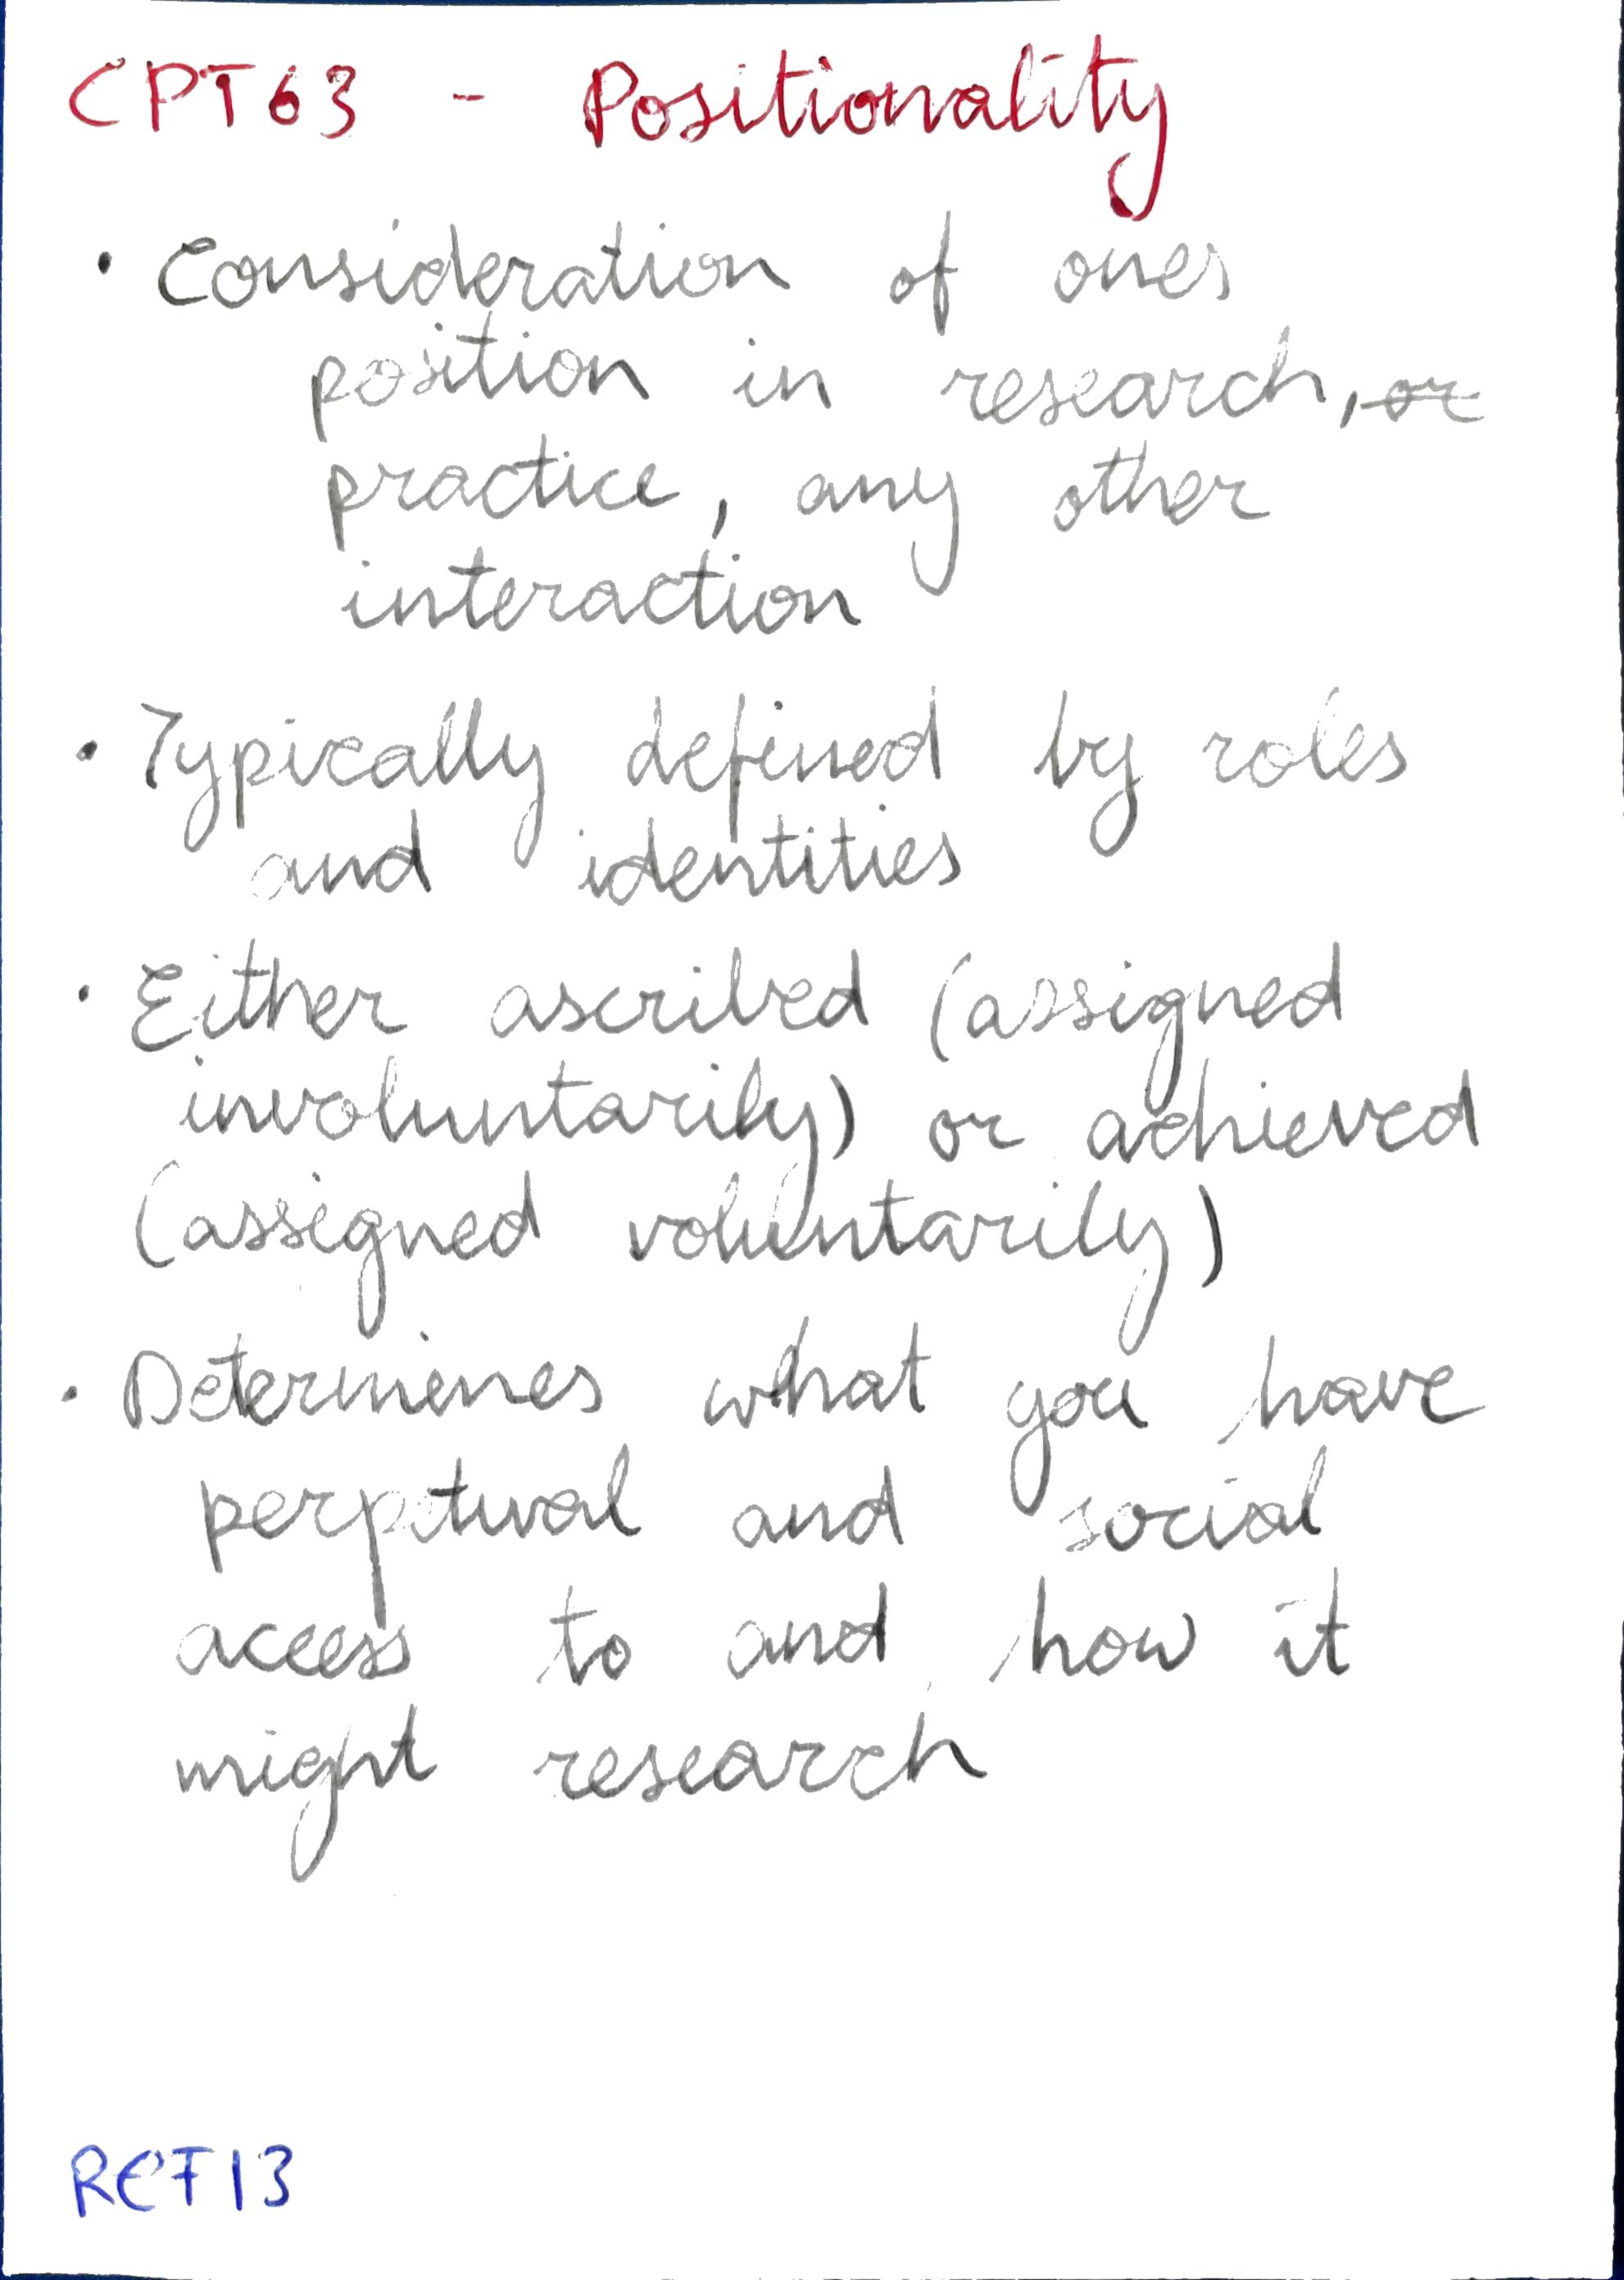 CPT63 - Positionality
• Consideration of ones
position in research, or
practice, any other
interaction
• Typically defined by roles
and identities
• Either ascribed (assigned
involuntarily) or achieved
(assigned voluntarily)
• Determines what you have
perpetual and social
access to and how it
might research
REF13